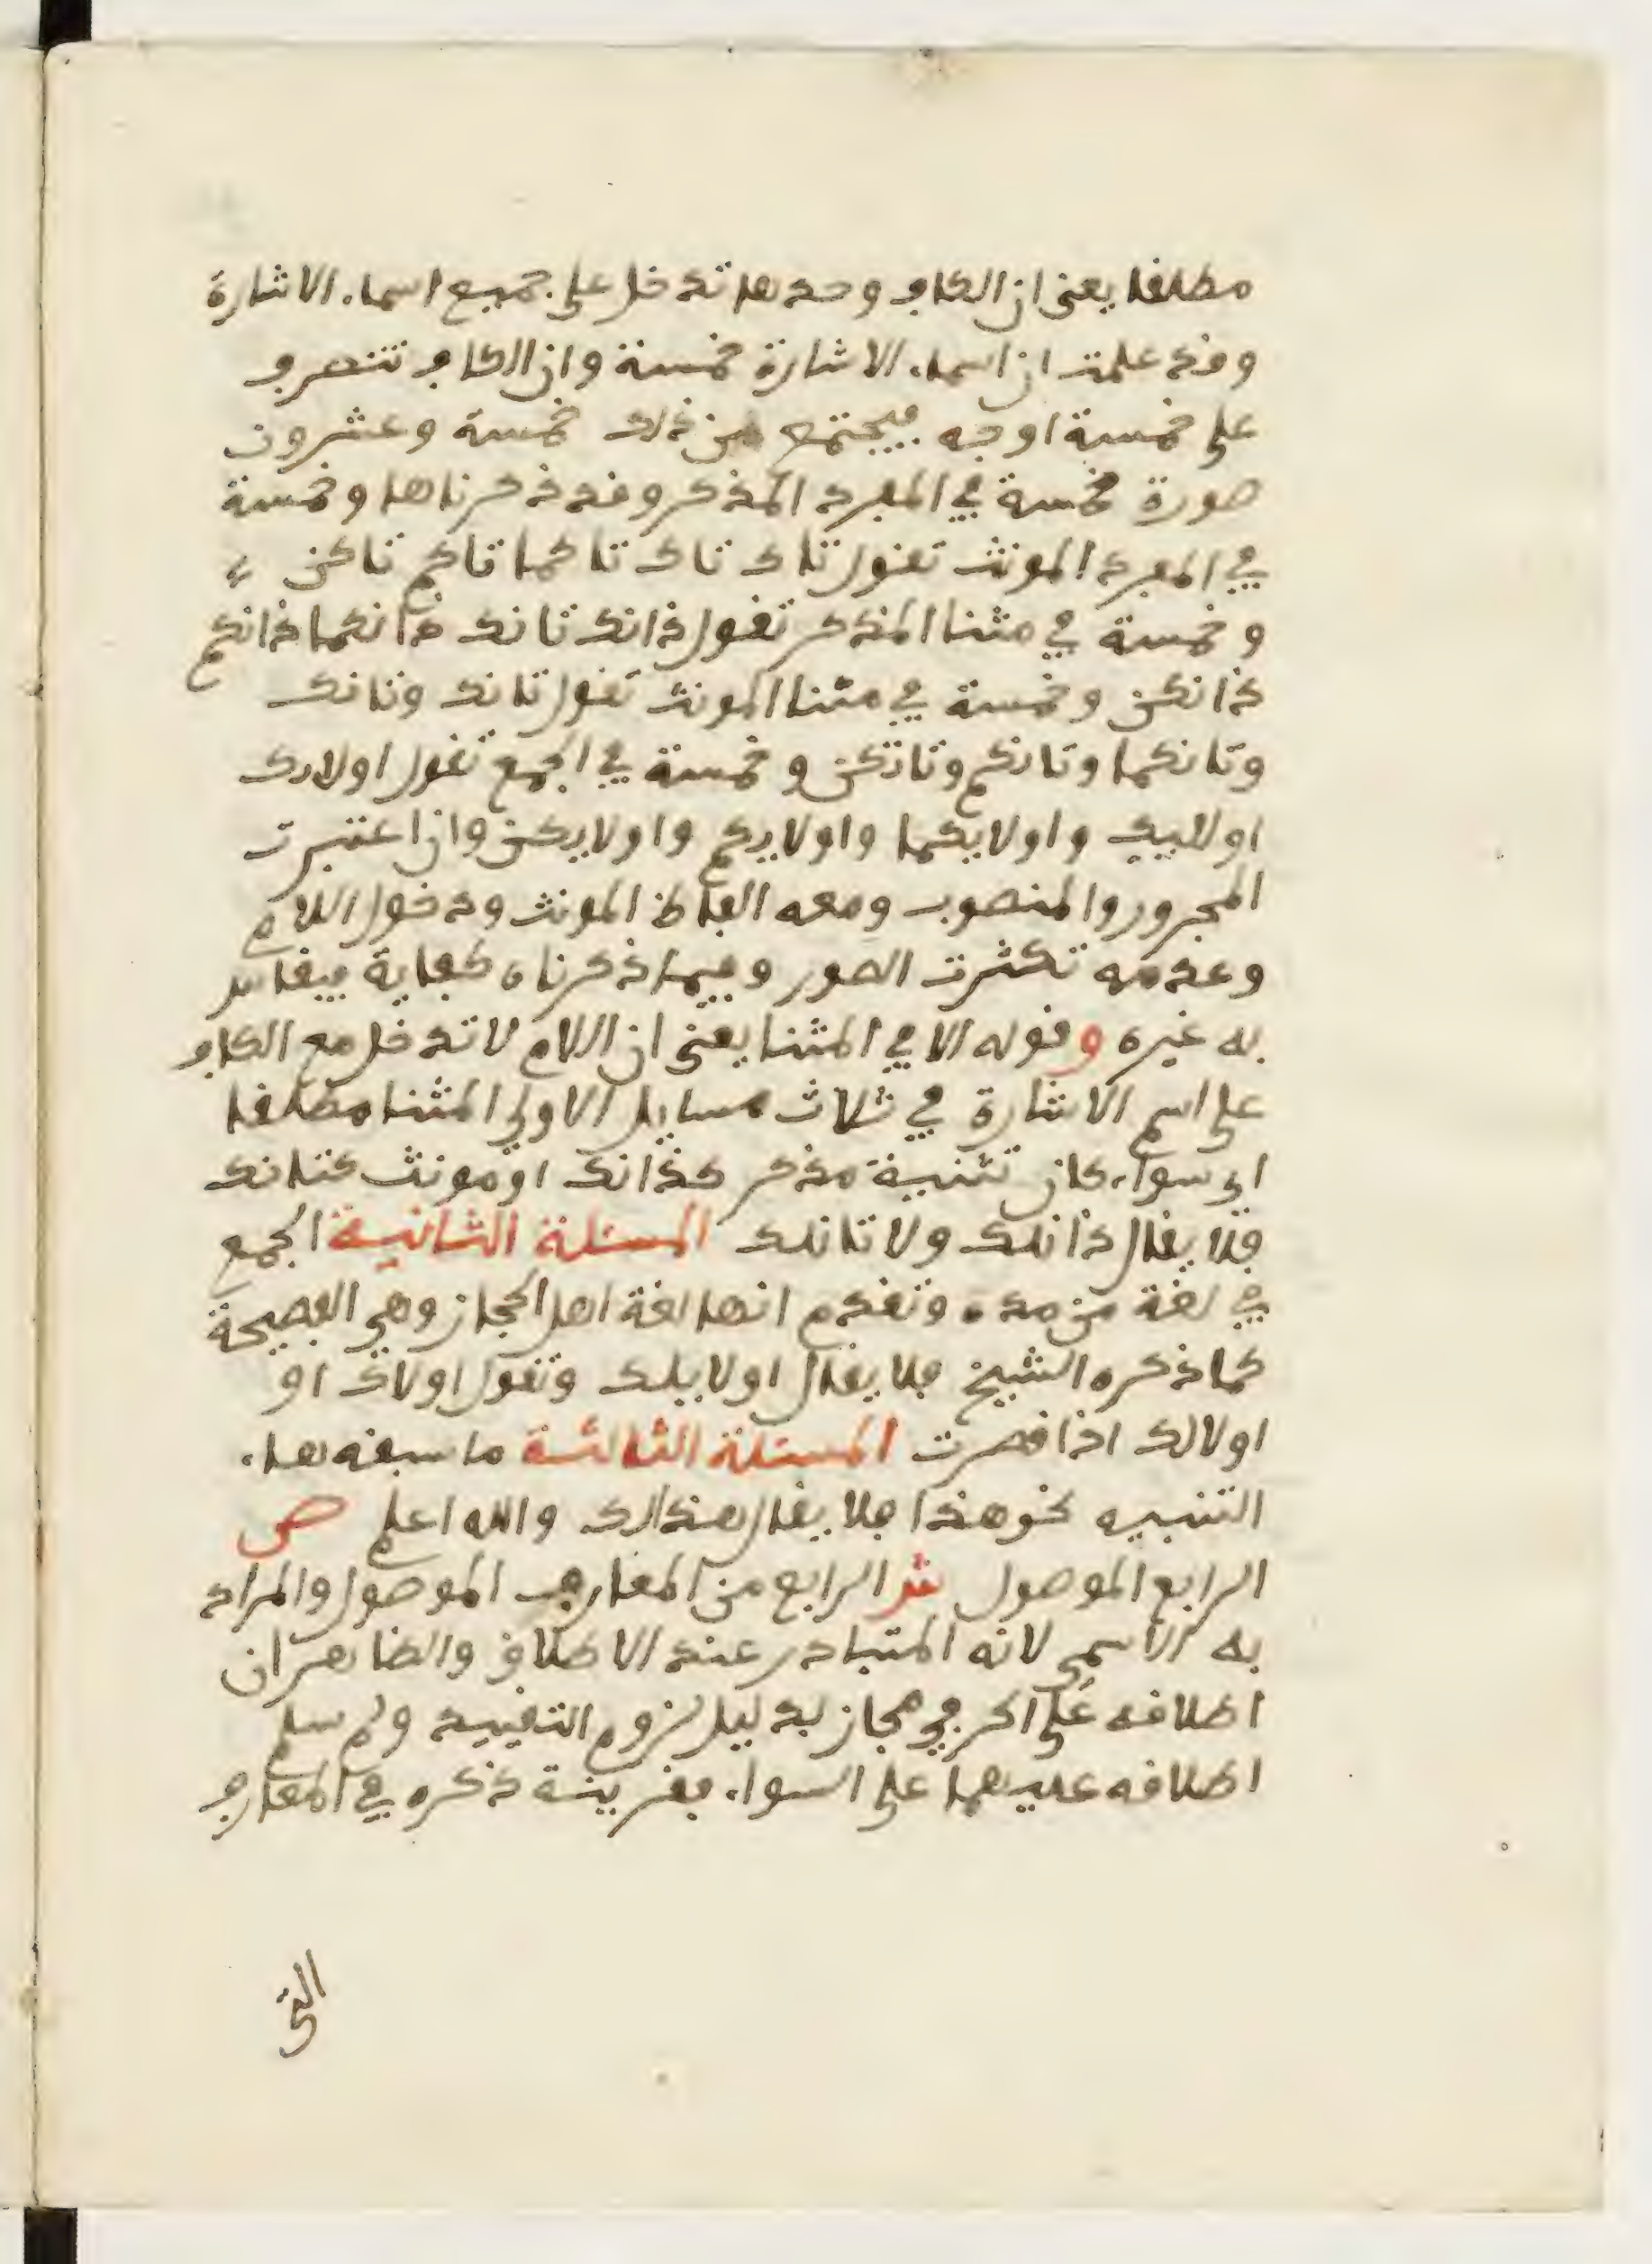 مطلقا يعنى ان الكاف وحدها تدخل على جميع اسماء الاشارة
وقد علمت ان اسماء الاشارة خمسة وان الكاف تتصرف
على خمسة اوجه فيجتمع من ذلك خمسة وعشرون
صورة خمسة في المفرد المذكر وقد ذكرناها وخمسة
في المفرد المونث تقول تاك تاك تاكما تاكم تاكن
وخمسة في مثنا المذكر تقول ذانك ذانك ذانكما ذانكم
ذانكن وخمسة في مثنا المونث تقول تانك وتانك
وتانكما وتانكم وتانكن وخمسة في الجمع تقول اولايك
اولايك واولايكما واولايكم واولايكن وان اعتبرت
المجرور والمنصوب ومعه الفاظ المونث ودخول اللام
وعدمه تكثرت الصور وفيما ذكرناه كفاية فيقاس
به غيره وقوله الا في المثنا يعنى ان اللام لا تدخل مع الكاف
على اسم الاشارة في ثلاث مسايل الاولى المثنا مطلقا
اي سواء كان تثنية مذكر كذانك او مونث كتانك
فلا يقال ذانلك ولا تانلك المسئلة الثانية الجمع
في لغة من مده وتقدم انها لغة اهل الحجاز وهي الفصيحة
كما ذكره الشيخ فلا يقال اولايلك وتقول اولاك او
اولالك اذا قصرت المسئلة الثالثة ما سبقه هاء
التنبيه نحو هذا فلا يقال هذالك والله اعلم ص
الرابع الموصول ش الرابع من المعارف الموصول والمراد
به الاسمي لانه المتبادر عند الاطلاق والظاهر ان
اطلاقه على الحرفي مجاز بدليل لزوم التقييد ولم سلم
اطلاقه عليهما على السواء فقرينة ذكره في المعارف
التى